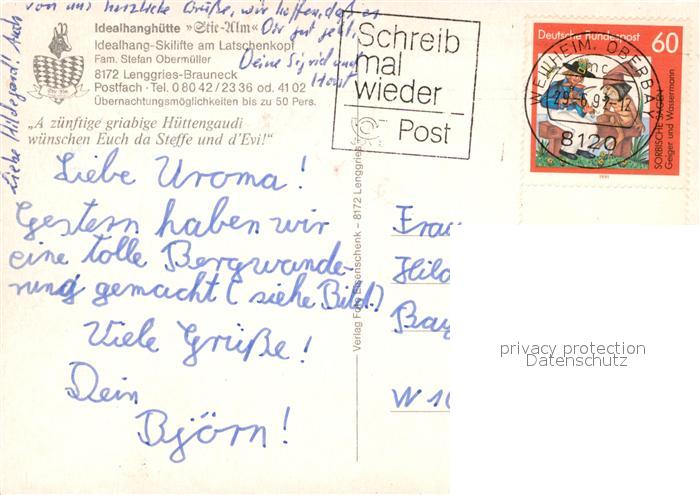 Liebe Hildegard! Auch
von uns herzliche Grüße, wir hoffen, daß es
Dir gut geht.
Deine Sigrid und
Horst
Idealhanghütte »Stie-Alm«
Idealhang-Skilifte am Latschenkopf
Fam. Stefan Obermüller
8172 Lenggries-Brauneck
Postfach · Tel. 0 80 42 / 23 36 od. 41 02
Übernachtungsmöglichkeiten bis zu 50 Pers.
„A zünftige griabige Hüttengaudi
wünschen Euch da Steffe und d'Evi!"
Schreib
mal
wieder
Post
Deutsche Bundespost
60
SORBISCHE SAGEN
Geiger und Wassermann
1991
WEILHEIM, OBERBAY
8120
Liebe Uroma!
Gestern haben wir
eine tolle Bergwande-
rung gemacht (siehe Bild!)
Viele Grüße!
Dein
Björn!
Verlag Foto Eisenschenk – 8172 Lenggries
Frau
Hild
Bay
W 10
privacy protection
Datenschutz